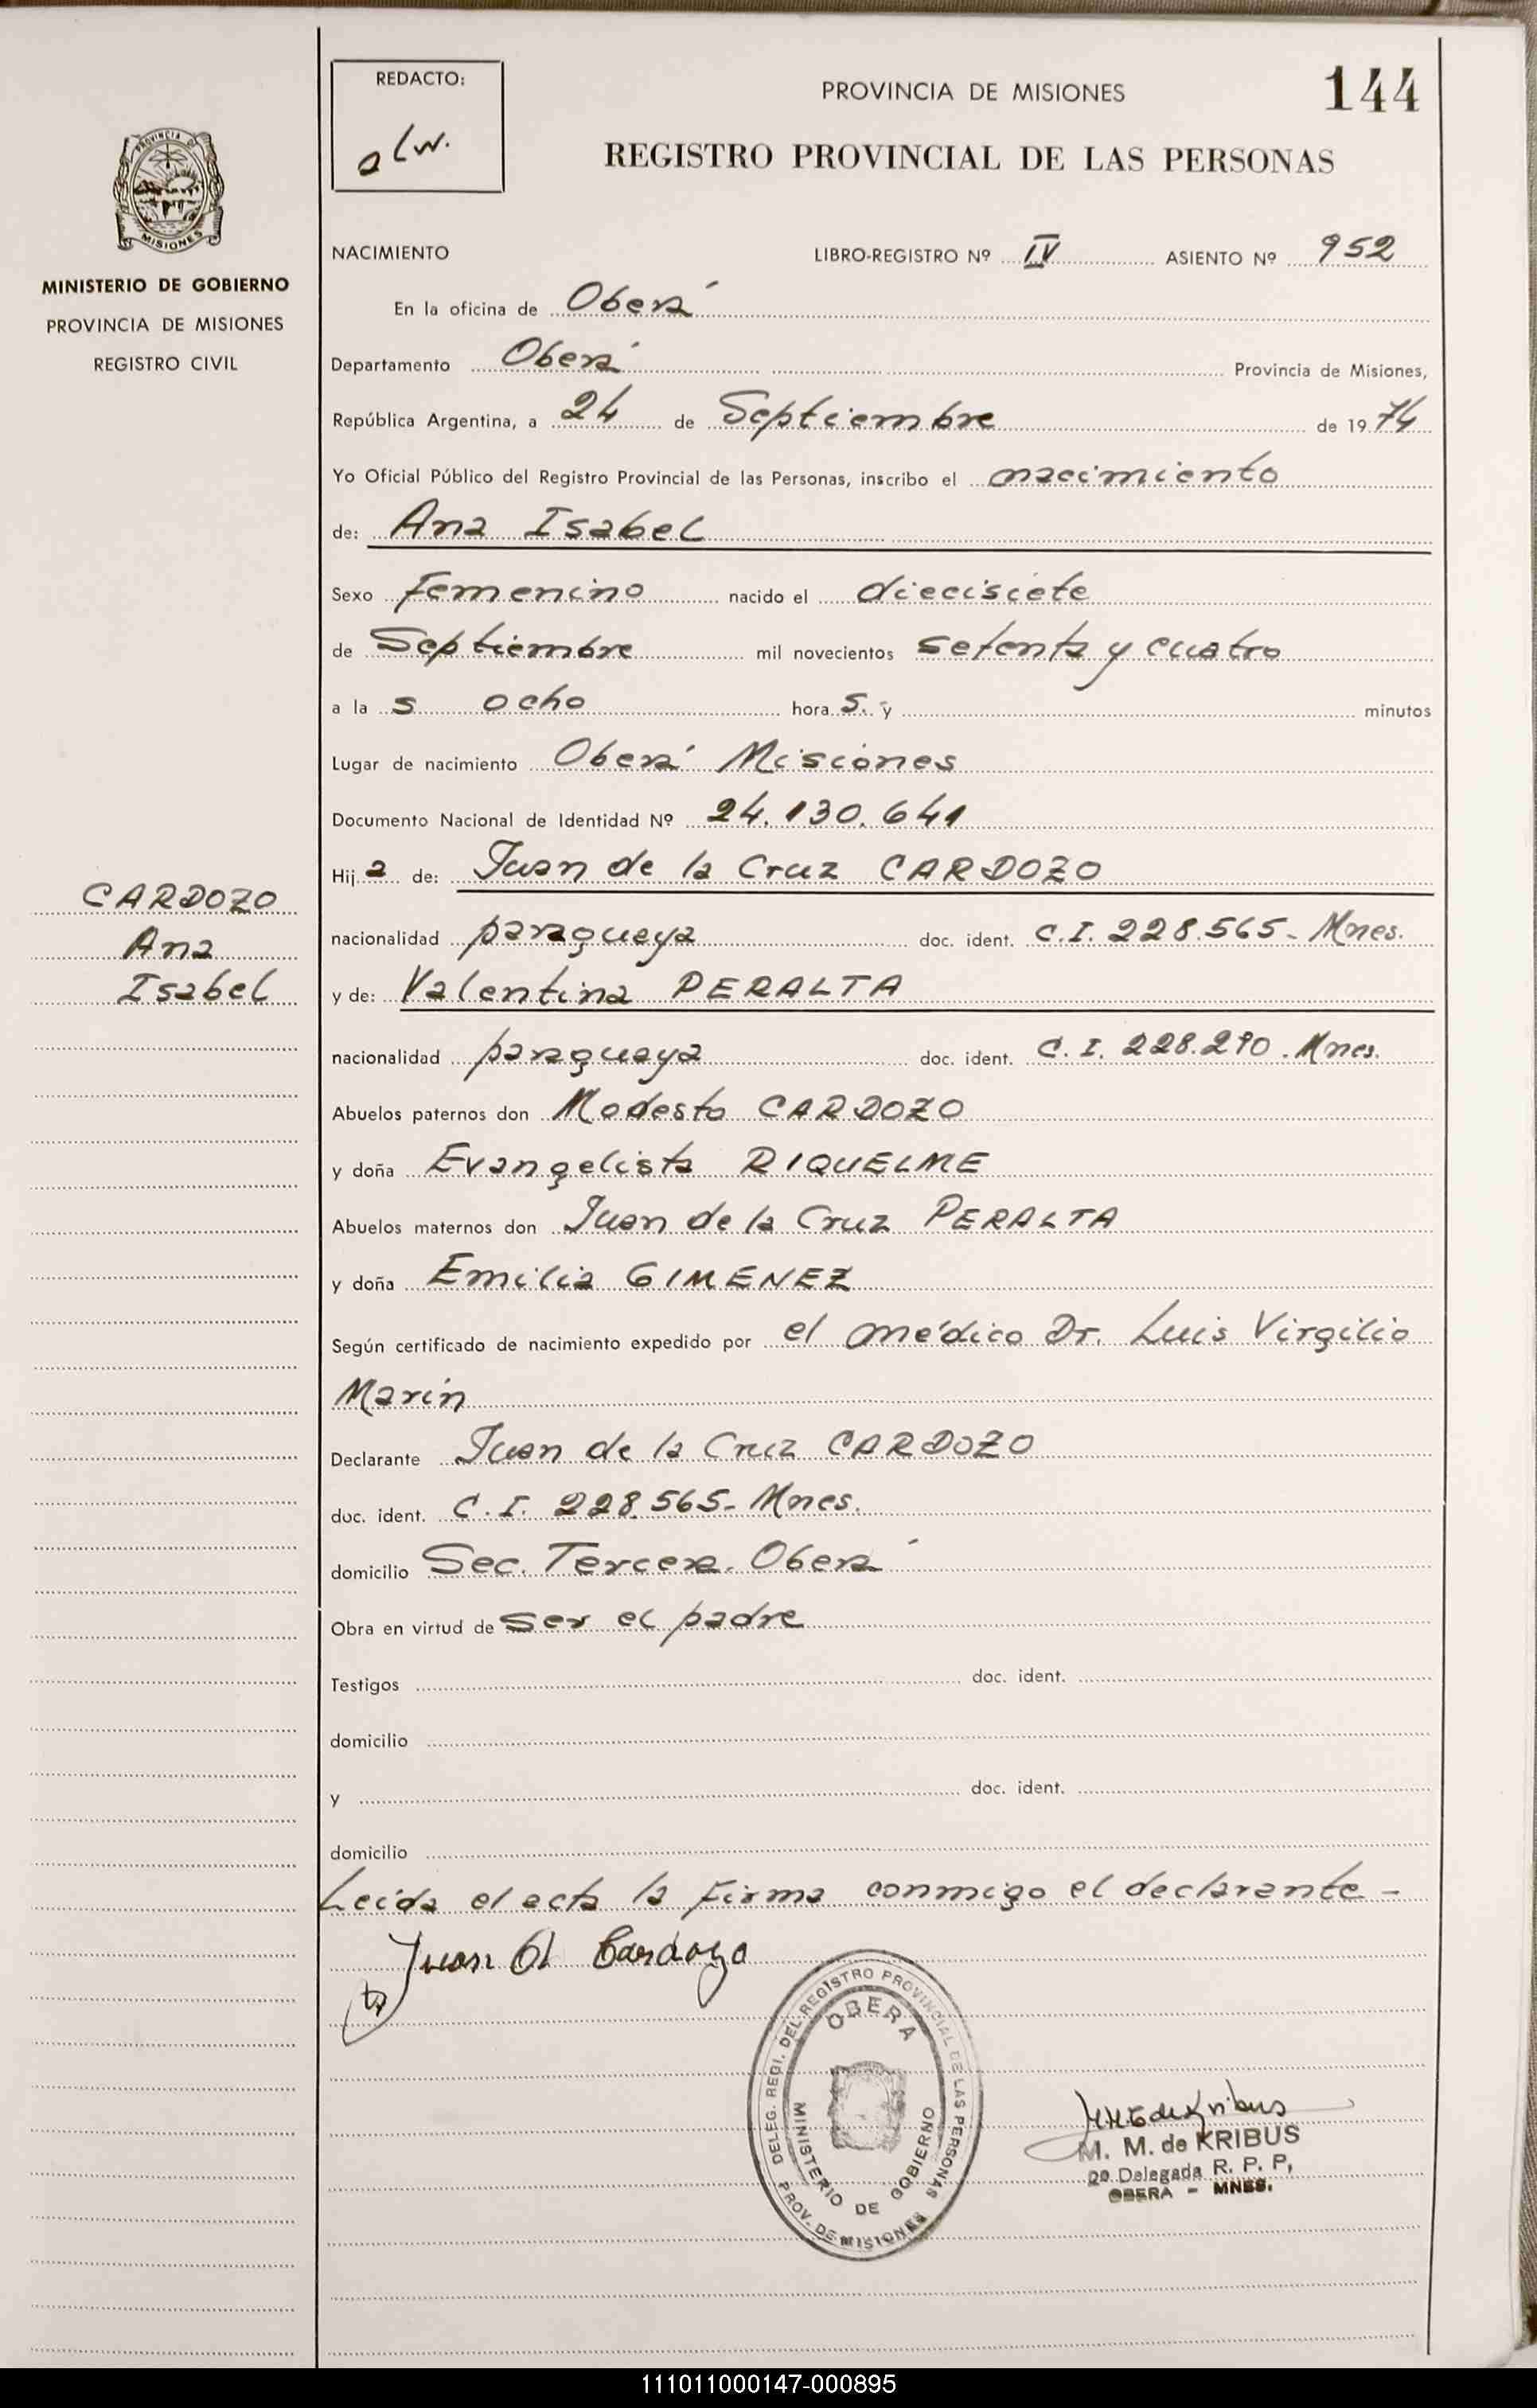 REDACTO:
alw.
PROVINCIA DE MISIONES
144
REGISTRO PROVINCIAL DE LAS PERSONAS
PROVINCIA DE
MISIONES
MINISTERIO DE GOBIERNO
PROVINCIA DE MISIONES
REGISTRO CIVIL
NACIMIENTO LIBRO-REGISTRO Nº IV ASIENTO Nº 952
En la oficina de Oberá
Departamento Oberá Provincia de Misiones,
República Argentina, a 24 de Septiembre de 1974
Yo Oficial Público del Registro Provincial de las Personas, inscribo el nacimiento
de: Ana Isabel
Sexo Femenino nacido el diecisiete
de Septiembre mil novecientos setenta y cuatro
a la s ocho hora s. y minutos
Lugar de nacimiento Oberá Misiones
Documento Nacional de Identidad Nº 24.130.641
Hij a de: Juan de la Cruz CARDOZO
CARDOZO
Ana
Isabel
nacionalidad paraguaya doc. ident. C.I. 228.565- Mnes.
y de: Valentina PERALTA
nacionalidad paraguaya doc. ident. C. I. 228.290. Mnes.
Abuelos paternos don Modesto CARDOZO
y doña Evangelista RIQUELME
Abuelos maternos don Juan de la Cruz PERALTA
y doña Emilia GIMENEZ
Según certificado de nacimiento expedido por el médico Dr. Luis Virgilio
Marin
Declarante Juan de la Cruz CARDOZO
doc. ident. C. I. 228.565- Mnes.
domicilio Sec. Tercera. Oberá
Obra en virtud de ser el padre
Testigos doc. ident.
domicilio
y doc. ident.
domicilio
Leida el acta la firma conmigo el declarante -
Juan Cardozo
DELEG. REGI. DEL REGISTRO PROVINCIAL DE LAS PERSONAS
OBERA
MINISTERIO DE GOBIERNO
PROV. DE MISIONES
M. M. de KRIBUS
2ª Delegada R. P. P,
OBERA - MNES.
111011000147-000895